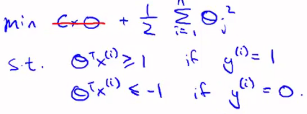 min C×0 + 1/2 Σ_{i=1}^{n} θ_j^2
s.t. θ^T x^{(i)} ≥ 1 if y^{(i)} = 1
θ^T x^{(i)} ≤ -1 if y^{(i)} = 0.